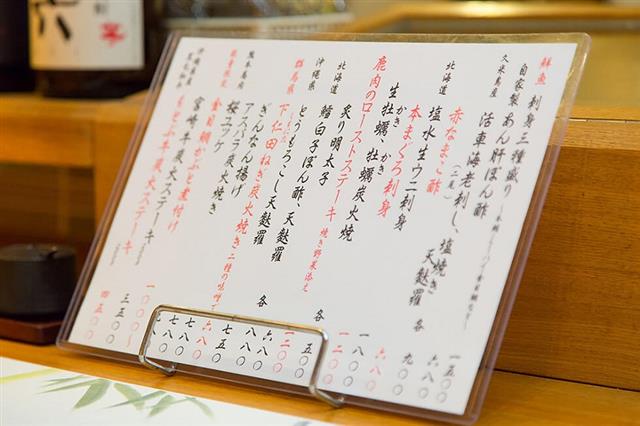 鮮魚 刺身三種盛り
自家製 あん肝ぽん酢 一五〇
久米島産 活車海老刺し、塩焼き 天麩羅 各 六八〇
(二尾)
赤なまこ酢 九〇
北海道 塩水生ウニ刺身
本まぐろ刺身 六八〇
生牡蠣、牡蠣炭火焼 一八〇
かき かき
鹿肉のローストステーキ 焼き野菜添え 一二〇
北海道 炙り明太子 五〇
沖縄県 鱈白子ぽん酢、天麩羅 各 一二〇〇
とうもろこし天麩羅
群馬県 下仁田ねぎ炭火焼き 二種の味噌で 六八〇
ぎんなん揚げ
アスパラ炭火焼き
熊本馬肉 桜ユッケ
数量限定 金目鯛かぶと煮付け
宮崎牛炭火ステーキ 三五〇
もとぶ牛炭火ステーキ 四五〇
六